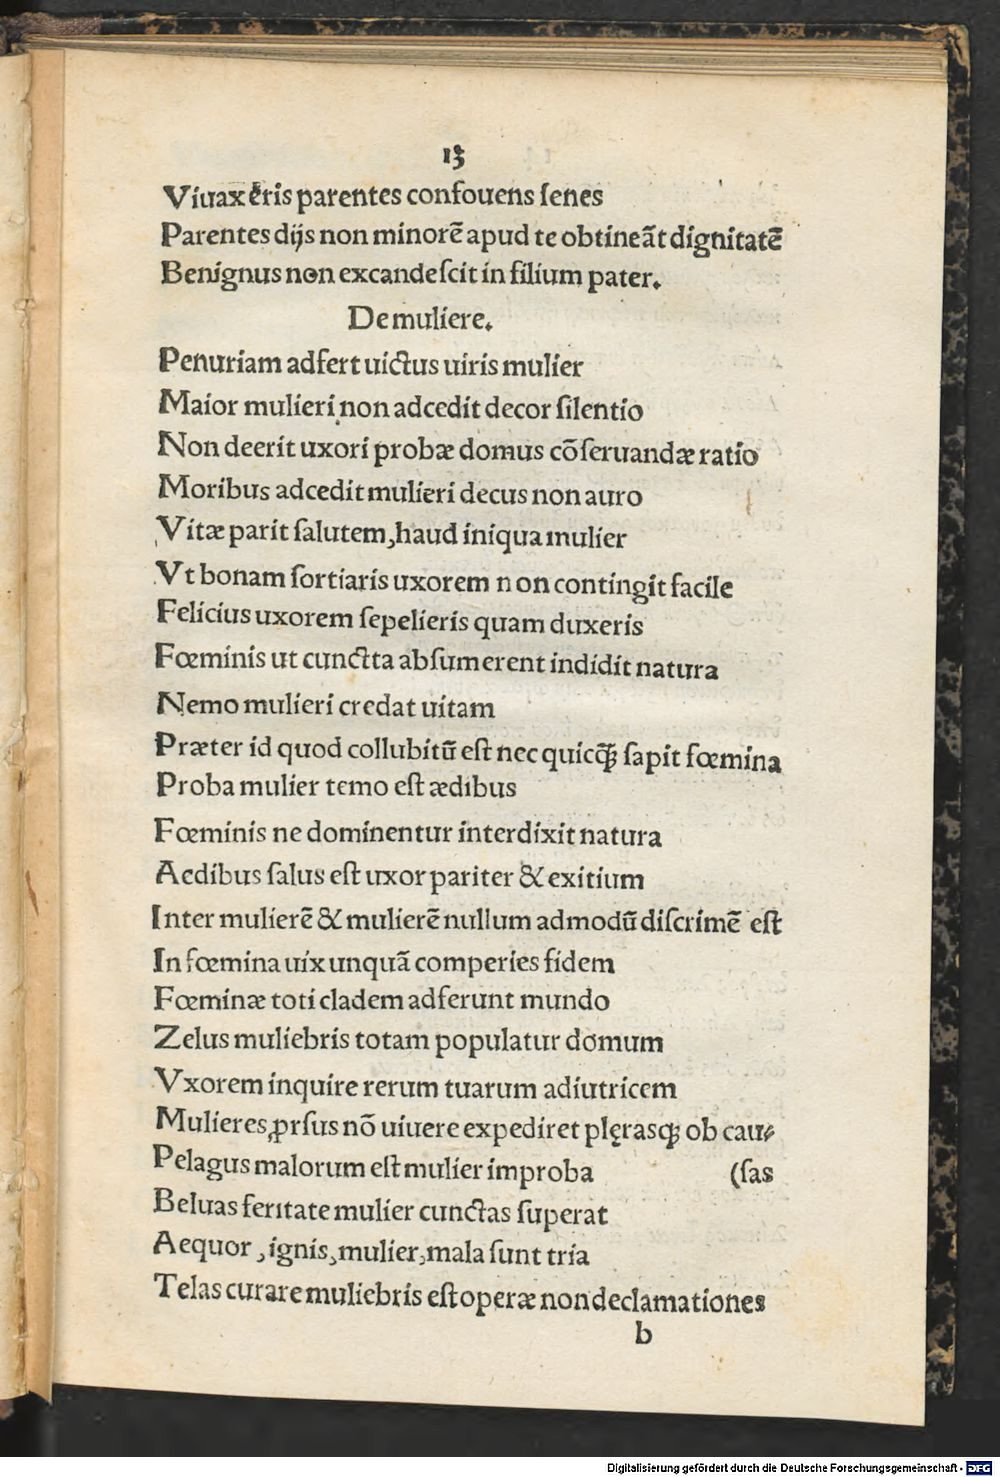 13
Viuax eris parentes confouens ſenes
Parentes dijs non minorē apud te obtineãt dignitatē
Benignus non excandeſcit in filium pater.
De muliere.
Penuriam adfert uictus uiris mulier
Maior mulieri non adcedit decor ſilentio
Non deerit uxori probæ domus cõſeruandæ ratio
Moribus adcedit mulieri decus non auro
Vitæ parit ſalutem, haud iniqua mulier
Vt bonam ſortiaris uxorem n on contingit facile
Felicius uxorem ſepelieris quam duxeris
Fœminis ut cunctta abſumerent indidit natura
Nemo mulieri credat uitam
Præter id quod collubitũ eſt nec quicꝗ̃ ſapit fœmina
Proba mulier temo eſt ædibus
Fœminis ne dominentur interdixit natura
Aedibus ſalus eſt uxor pariter & exitium
Inter mulierē & mulierē nullum admodũ diſcrimē eſt
In fœmina uix unquã comperies fidem
Fœminæ toti cladem adferunt mundo
Zelus muliebris totam populatur domum
Vxorem inquire rerum tuarum adiutricem
Mulieres ꝓrſus nõ uiuere expediret plęrasqꝫ ob cau⸗
Pelagus malorum eſt mulier improba (ſas
Beluas feritate mulier cunctas ſuperat
Aequor, ignis, mulier, mala ſunt tria
Telas curare muliebris eſt operæ non declamationes
b
Digitalisierung gefördert durch die Deutsche Forschungsgemeinschaft - DFG